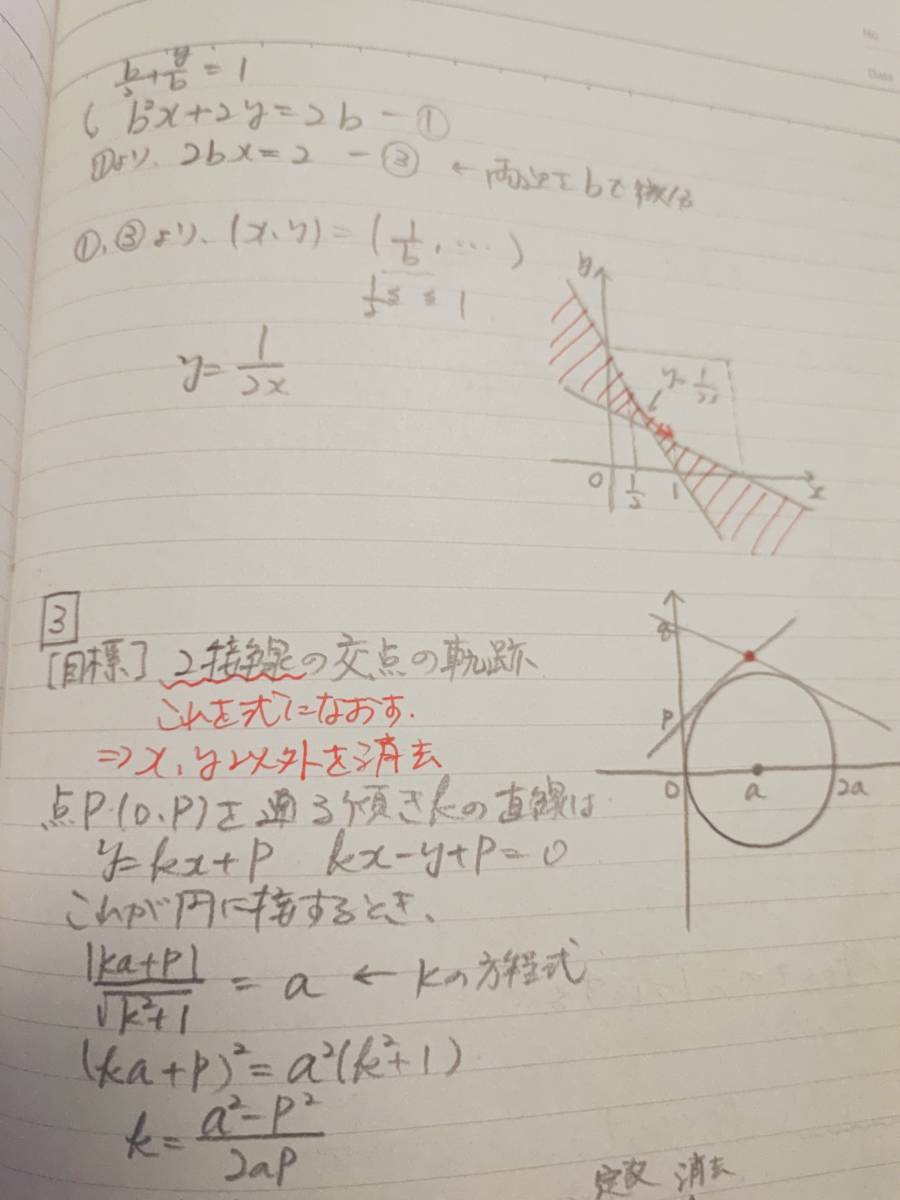 b/2 + y/b = 1
( b²x+2y=2b − ①
①より、2bx=2 − ③ ← 両辺をbで微分
①、③より、(x、y) = (1/b, … )
1/2 ≦ ≦ 1
y = 1/2x
y
y=1/2x
0 1/2 1 x
3
[目標] 2接線の交点の軌跡
これを式になおす.
⇒x、y以外を消去
点P(0、P)を通る傾きkの直線は
y=kx+P kx−y+P=0
これが円に接するとき、
|ka+P|/√k²+1 = a ← kの方程式
(ka+P)²=a²(k²+1)
k = a²−P²/2aP
P
0 a 2a
定数 消去